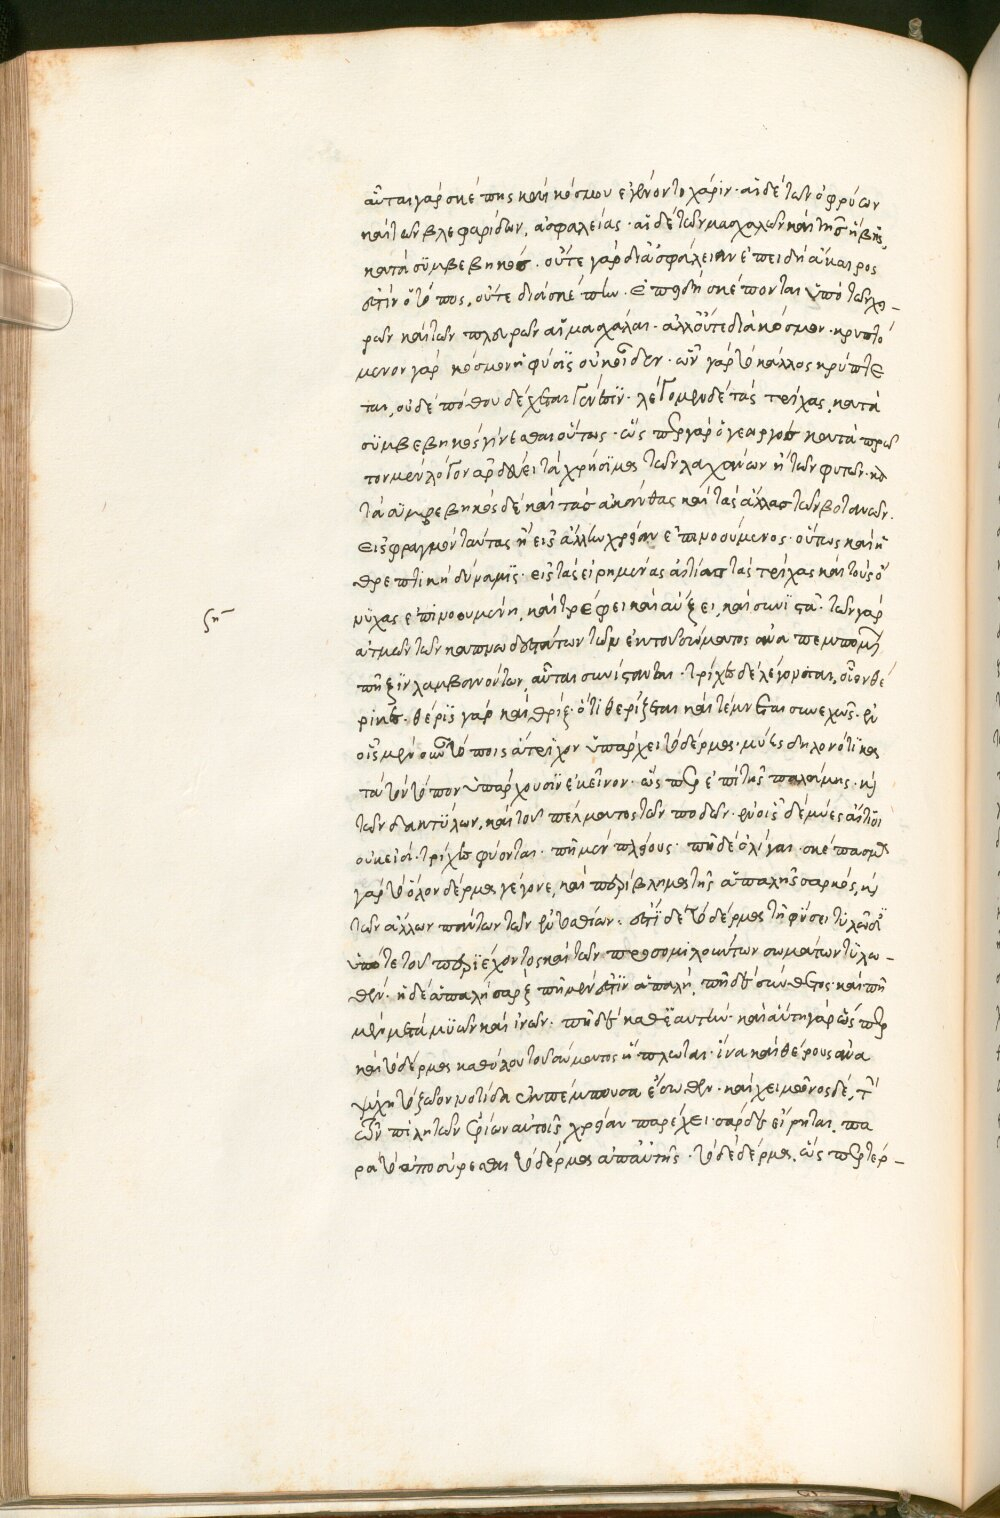 αὗται γὰρ σκέπης καὶ κόσμου ἐγένοντο χάριν· αἱ δὲ τῶν ὀφρύων
καὶ τῶν βλεφαρίδων, ἀσφαλείας· αἱ δὲ τῶν μασχαλῶν καὶ τῆς ἥβης,
κατὰ συμβεβηκός· οὔτε γὰρ διὰ ἀσφάλειαν ἐπειδὴ ἄκαιρος
ἐστὶν ὁ τόπος, οὔτε διὰ σκέπην· ἐπειδὴ σκέπονται ὑπὸ τῶν χει-
ρῶν καὶ τῶν πλευρῶν αἱ μασχάλαι· ἀλλ' οὔτε διὰ κόσμον· κρυπτό
μενον γὰρ κόσμον ἡ φύσις οὐκ οἶδεν· ὧν γὰρ τὸ κάλλος κρύπτε
ται, οὐδὲ πόθου δέχεται γένεσιν· λέγομεν δὲ τὰς τρίχας, κατὰ
συμβεβηκὸς γίνεσθαι οὕτως· ὥσπερ γὰρ ὁ γεωργὸς κατὰ πρῶ
τον μὲν λόγον ἀρδεύει τὰ χρήσιμα τῶν λαχάνων ἢ τῶν φυτῶν· κα
τὰ συμβεβηκὸς δὲ καὶ τὰς ἀκάνθας καὶ τὰς ἄλλας τῶν βοτανῶν.
εἰς φραγμὸν ταύτας ἢ εἰς ἄλλην χρείαν ἐπινοούμενος· οὕτως καὶ ἡ
θρεπτικὴ δύναμις· εἰς τὰς εἰρημένας αἰτίας τὰς τρίχας καὶ τοὺς ὄ
νυχας ἐπινοουμένη, καὶ τρέφει καὶ αὔξει, καὶ συνιστᾶ· τῶν γὰρ
ἀτμῶν τῶν καπνωδεστάτων τῶν ἐν τοῦ σώματος ἀναπεμπομένων
πῆξιν λαμβανόντων, αὗται συνίστανται· τρίχες δὲ λέγονται, οἷον θέ
ριχες· θέρις γὰρ καὶ θρίξ· ὅτι θερίζεται καὶ τέμνεται συνεχῶς· ἐν
οἷς μὲν οὖν τόποις ἄτριχον ὑπάρχει τὸ δέρμα· μύες δηλονότι κα
τὰ τὸν τόπον ὑπάρχουσιν ἐκεῖνον· ὥσπερ ἐπὶ τῆς παλάμης· καὶ
τῶν δακτύλων, καὶ τοῦ πέλματος τῶν ποδῶν· ἐν οἷς δὲ μύες αἴτιοι
οὐκ εἰσί· τρίχες φύονται· πῆ μὲν πλείους· πῆ δὲ ὀλίγαι· σκέπασμα
γὰρ τὸ ὅλον δέρμα γέγονε, καὶ περίβλημα τῆς ἁπαλῆς σαρκός, καὶ
τῶν ἄλλων πάντων τῶν εὐπαθῶν· ἐστὶ δὲ τὸ δέρμα τῇ φύσει τυλῶδες
ὑπό τε τοῦ περιέχοντος καὶ τῶν προσομιλούντων σωμάτων τυλω-
θέν· ἡ δὲ ἁπαλὴ σὰρξ πῆ μέν ἐστιν ἁπαλή, πῆ δὲ σύνθετος· καὶ πῆ
μὲν μετὰ μυῶν καὶ ἰνῶν· πῆ δὲ καθ' ἑαυτήν· καὶ αὐτὴ γὰρ ὥσπερ
καὶ τὸ δέρμα καθ' ὅλου τοῦ σώματος ἥπλωται· ἵνα καὶ θέρους ἀνα
ψύχῃ τὸ ζῶον νοτίδα ἀναπέμπουσα ἔσωθεν· καὶ χειμῶνος δὲ, τὴν
ἐκ τῶν πιλητῶν ἐρίων αὐτοῖς χρείαν παρέχει· σὰρξ δὲ εἴρηται, πα
ρὰ τὸ ἀποσύρεσθαι τὸ δέρμα ἀπ' αὐτῆς· τὸ δὲ δέρμα, ὥσπερ τέρ-
ση